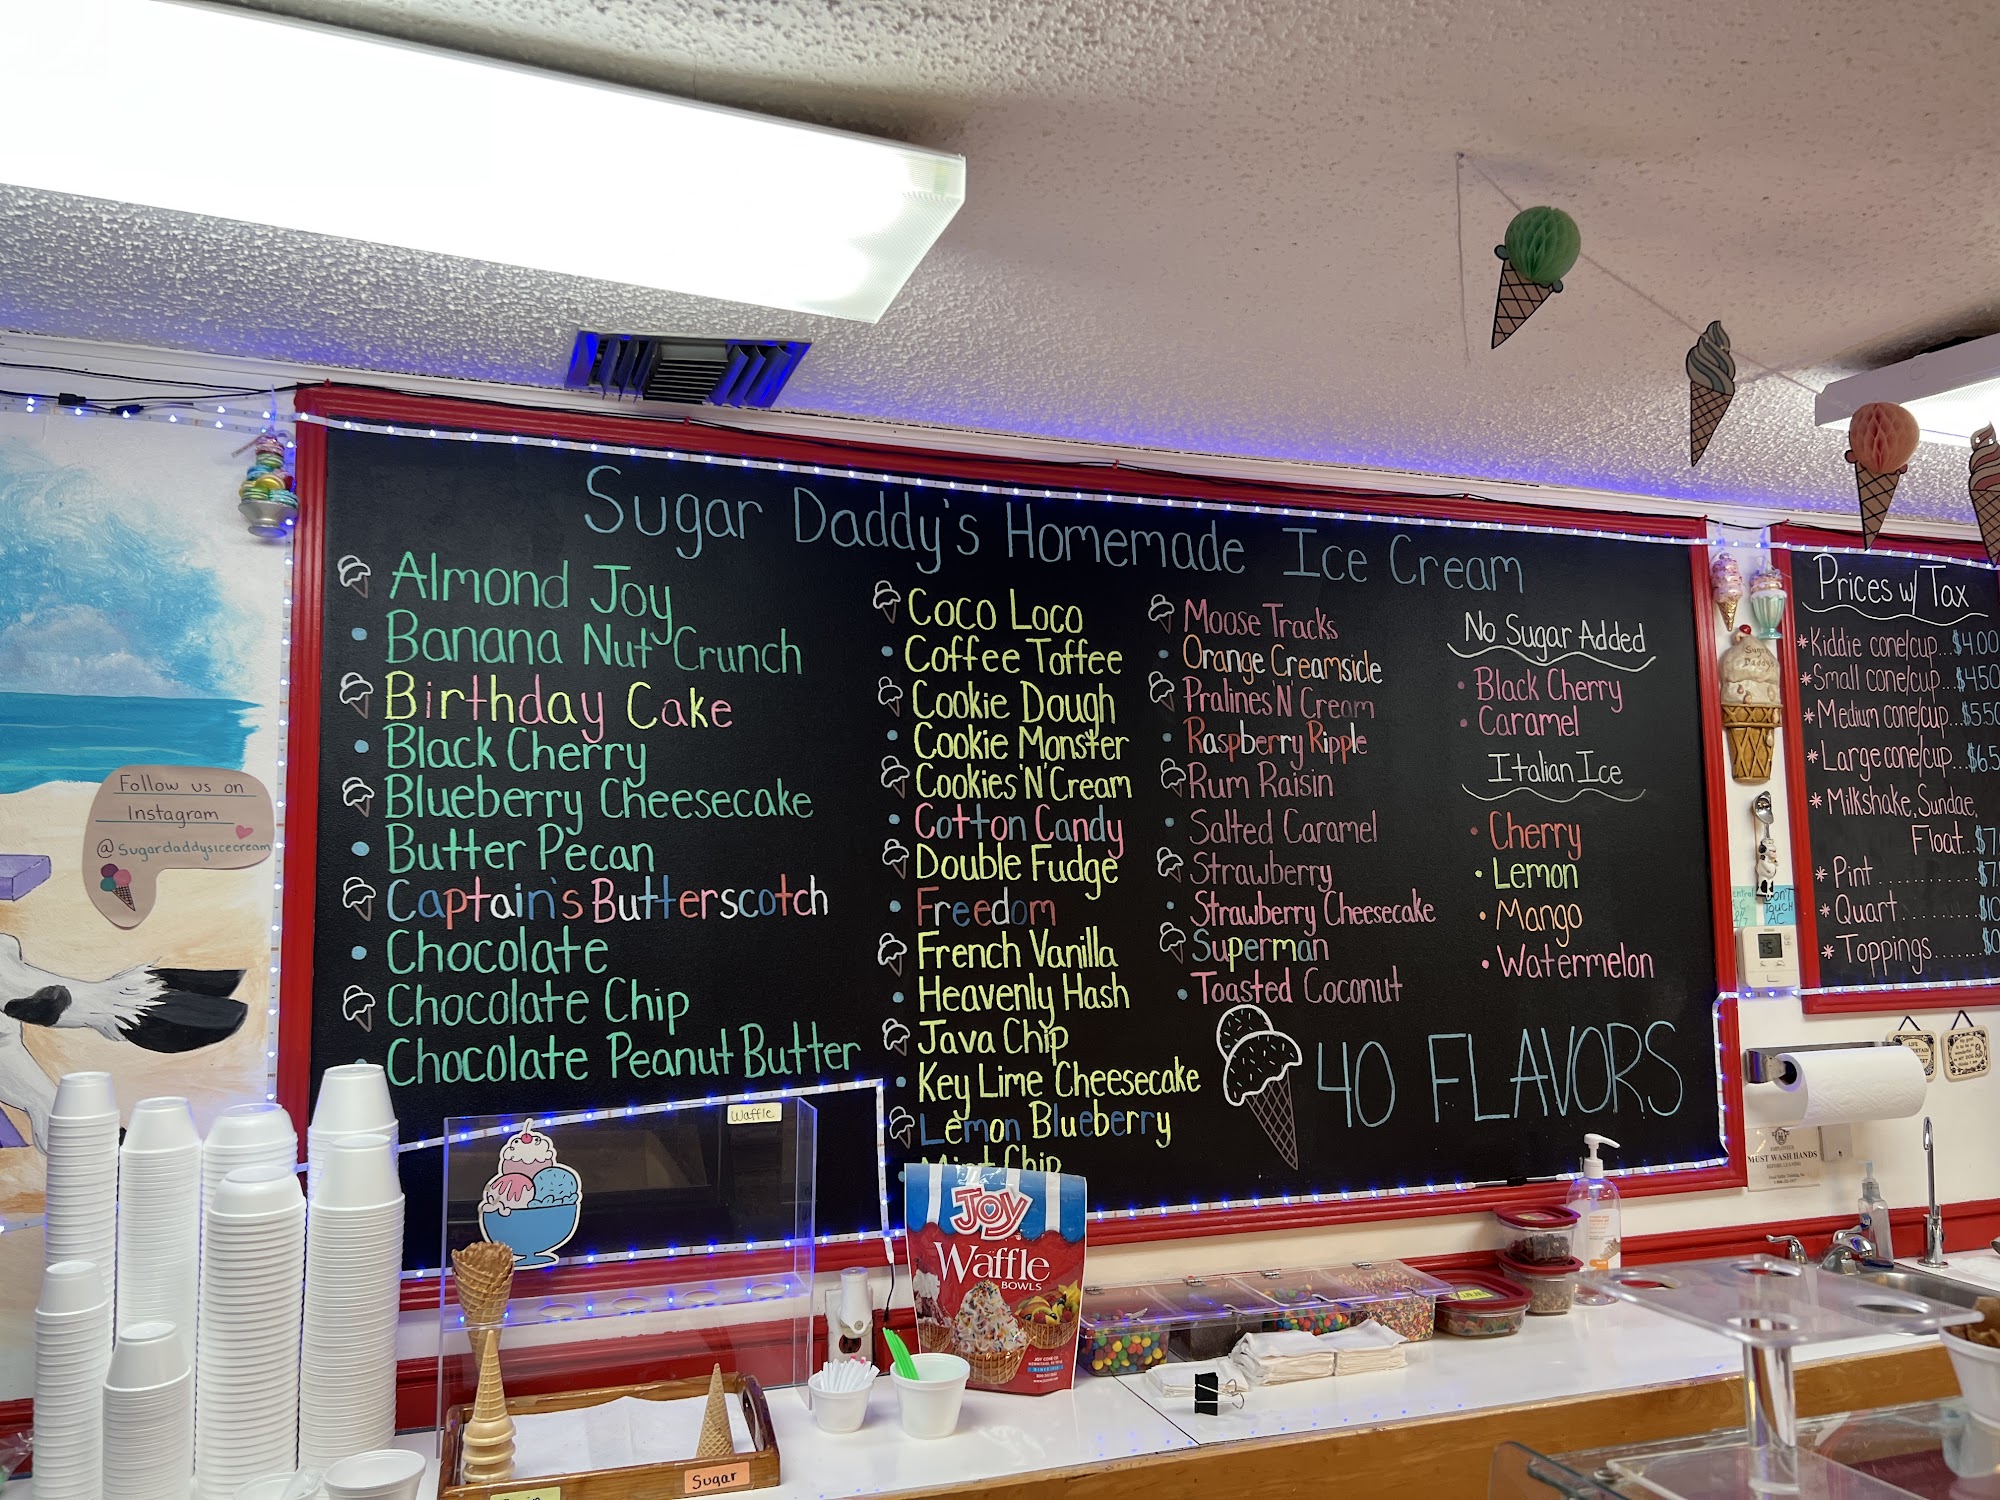 Sugar Daddy's Homemade Ice Cream
Almond Joy
Banana Nut Crunch
Birthday Cake
Black Cherry
Blueberry Cheesecake
Butter Pecan
Captain's Butterscotch
Chocolate
Chocolate Chip
Chocolate Peanut Butter
Coco Loco
Coffee Toffee
Cookie Dough
Cookie Monster
Cookies 'N' Cream
Cotton Candy
Double Fudge
Freedom
French Vanilla
Heavenly Hash
Java Chip
Key Lime Cheesecake
Lemon Blueberry
Mint Chip
Moose Tracks
Orange Creamsicle
Pralines N' Cream
Raspberry Ripple
Rum Raisin
Salted Caramel
Strawberry
Strawberry Cheesecake
Superman
Toasted Coconut
No Sugar Added
Black Cherry
Caramel
Italian Ice
Cherry
Lemon
Mango
Watermelon
40 FLAVORS
Prices w/ Tax
*Kiddie cone/cup...$4.00
*Small cone/cup...$4.50
*Medium cone/cup...$5.50
*Large cone/cup...$6.5
*Milkshake, Sundae,
Float...$7.
*Pint..........$7.
*Quart........$10
*Toppings......$0
Follow us on
Instagram
@sugardaddysicecream
Waffle
Sugar
JOY
Waffle
BOWLS
DON'T
TOUCH
AC
MUST WASH HANDS